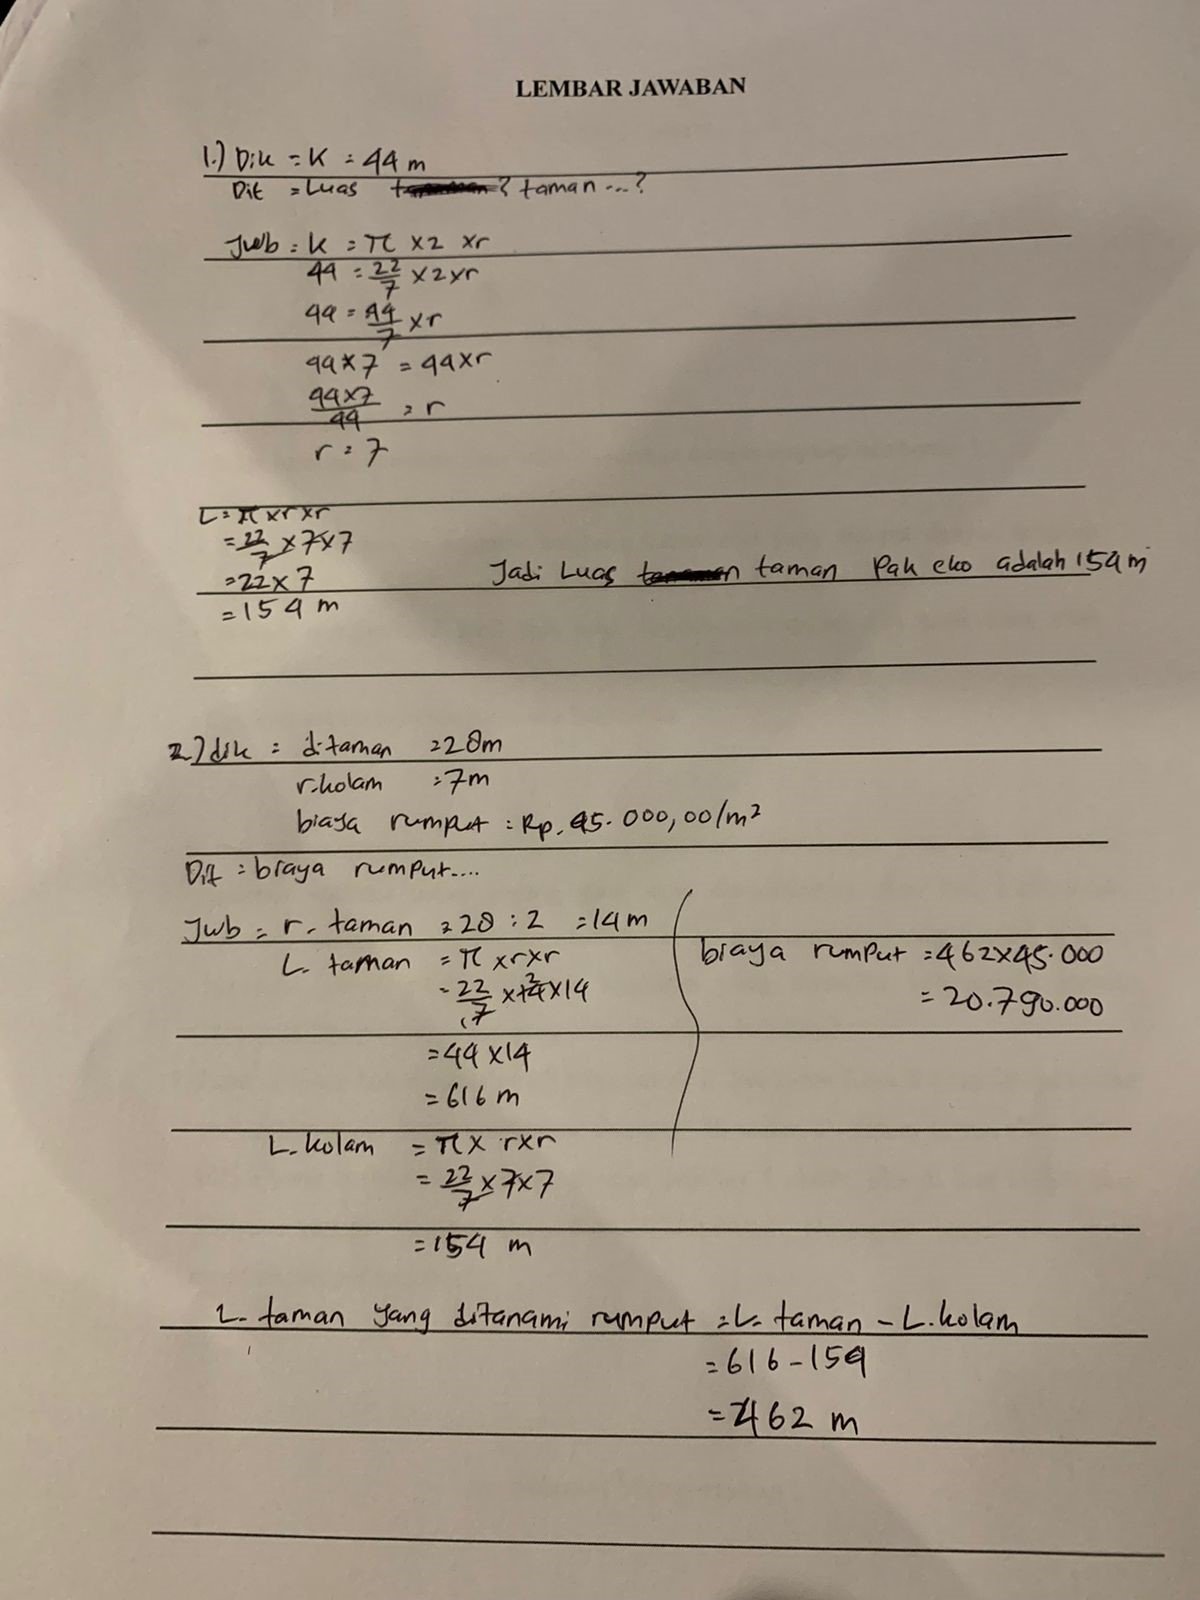 LEMBAR JAWABAN
1.) Dik = K = 44 m
Dit = Luas ? taman ...?
Jwb = K = π x 2 x r
44 = 22/7 x 2 x r
44 = 44/7 x r
44 x 7 = 44 x r
44 x 7/44 = r
r = 7
L = π x r x r
= 22/7 x 7 x 7
= 22 x 7
= 154 m
Jadi Luas taman Pak eko adalah 154 m
2.) dik = d. taman = 28 m
r. kolam = 7 m
biaya rumput = Rp. 45.000,00/m²
Dit = biaya rumput....
Jwb = r. taman = 28 : 2 = 14 m
L. taman = π x r x r
= 22/7 x 14 x 14
= 44 x 14
= 616 m
L. kolam = π x r x r
= 22/7 x 7 x 7
= 154 m
L. taman yang ditanami rumput = L. taman - L. kolam
= 616 - 154
= 462 m
biaya rumput = 462 x 45.000
= 20.790.000